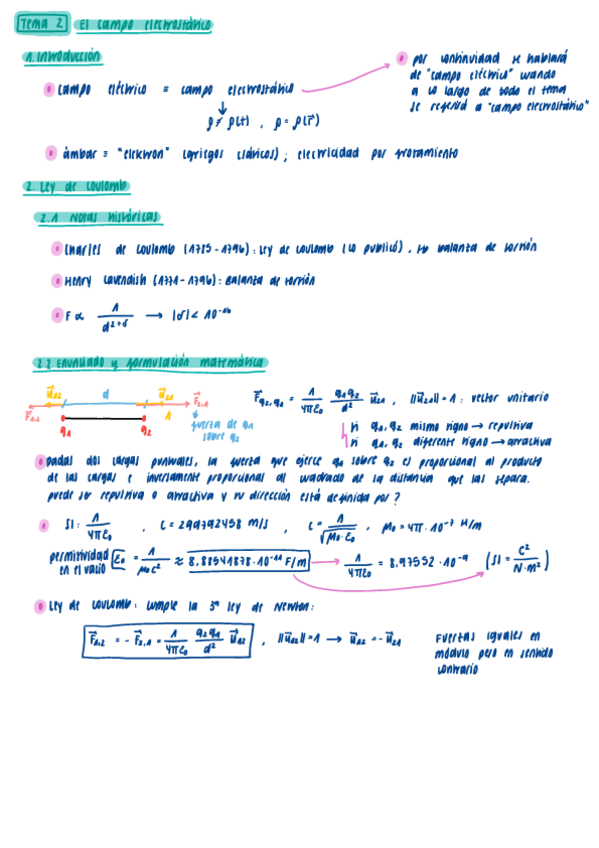 Tema 2 El campo electrostático
1. Introducción
campo eléctrico ≡ campo electrostático
por continuidad se hablará
de "campo eléctrico" cuando
a lo largo de todo el tema
se referirá a "campo electrostático"
ρ ≠ ρ(t) , ρ = ρ(r⃗)
ámbar ≡ "elektron" (griegos clásicos) ; electricidad por frotamiento
2. Ley de Coulomb
2.1 Notas históricas
Charles de Coulomb (1785 - 1796) : Ley de Coulomb (lo publicó) , su balanza de torsión
Henry Cavendish (1771 - 1796) : Balanza de torsión
F ∝ 1 / d^(2+δ) → |δ| < 10^-16
2.2 Enunciado y formulación matemática
u⃗12 d u⃗21 F⃗2,1
F⃗1,2 q1 q2 1
fuerza de q1
sobre q2
F⃗q2,q1 = 1/(4πε0) q1q2/d² u⃗21 , ||u⃗21|| = 1 : vector unitario
si q1, q2 mismo signo → repulsiva
si q1, q2 diferente signo → atractiva
Dadas dos cargas puntuales, la fuerza que ejerce q1 sobre q2 es proporcional al producto
de las cargas e inversamente proporcional al cuadrado de la distancia que las separa.
puede ser repulsiva o atractiva y su dirección está definida por ?
SI : 1/(4πε0) , c = 299792458 m/s , c = 1/√(μ0·ε0) , μ0 = 4π · 10^-7 H/m
permitividad en el vacío [ε0 = 1/(μ0c²) ≈ 8.88541878 · 10^-12 F/m → 1/(4πε0) = 8.97552 · 10^-9 (SI = C²/(N·m²))
Ley de Coulomb : cumple la 3ª ley de Newton :
F⃗1,2 = - F⃗2,1 = 1/(4πε0) q2q1/d² u⃗12 , ||u⃗12|| = 1 → u⃗12 = - u⃗21
Fuerzas iguales en
módulo pero en sentido
contrario